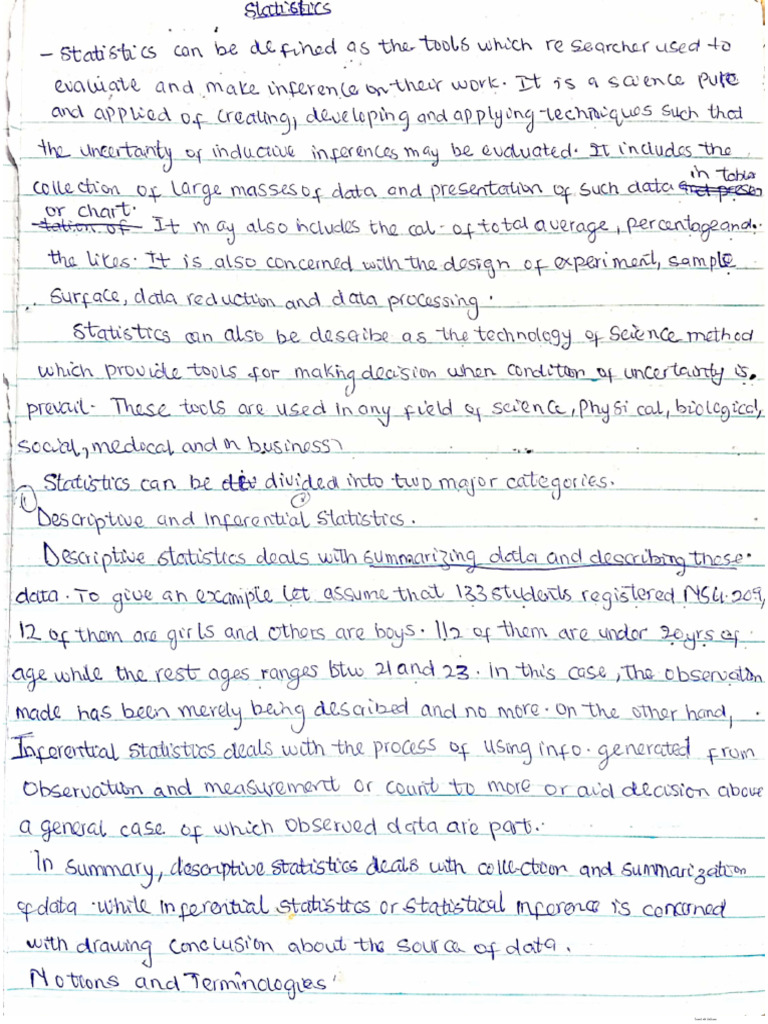 Statistics
- Statistics can be defined as the tools which researcher used to
evaluate and make inference on their work. It is a science pure
and applied of creating, developing and applying techniques such that
the uncertanty of inductive inferences may be evaluated. It includes the
collection of large masses of data and presentation of such data in table
or chart. It may also includes the cal. of total average, percentage and.
the likes. It is also concerned with the design of experiment, sample
surface, data reduction and data processing.
Statistics can also be describe as the technology of science method
which provide tools for making decision when condition of uncertainty is.
prevail. These tools are used in any field of science, physical, biological,
social, medocal and in business
Statistics can be divided into two major categories.
① Descriptive and ② Inferential statistics.
Descriptive statistics deals with summarizing data and describing these.
data. To give an example let assume that 133 students registered NSU.209,
12 of them are girls and others are boys. 112 of them are under 20yrs of
age while the rest ages ranges btw 21 and 23. In this case, the observation
made has been merely being described and no more. On the other hand,
Inferential statistics deals with the process of using info. generated from
observation and measurement or count to more or aid decision above
a general case of which observed data are part.
In summary, descriptive statistics deals with collection and summarization
of data. while inferential statistics or statistical inference is concerned
with drawing conclusion about the source of data.
Notions and Terminologies